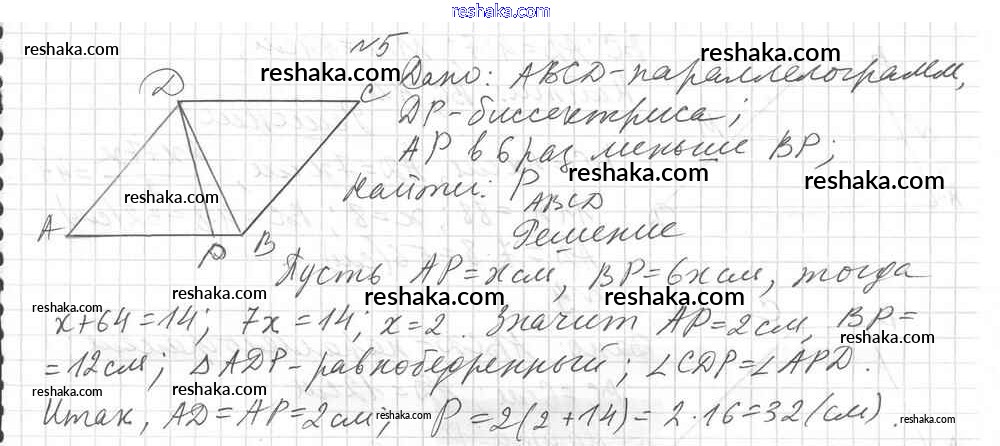 reshaka.com
№5
reshaka.com reshaka.com reshaka.com
Дано: ABCD-параллелограмм,
DP-биссектриса;
AP в 6 раз меньше BP;
reshaka.com reshaka.com reshaka.com
Найти: P ABCD
Решение
D C
A P B
Пусть AP=x см, BP=6x см, тогда
reshaka.com reshaka.com reshaka.com reshaka.com reshaka.com
x+64=14; 7x=14; x=2. Значит AP=2см, BP=
=12см; △ADP-равнобедренный; ∠CDP=∠APD.
reshaka.com reshaka.com reshaka.com reshaka.com
Итак, AD=AP=2см; P=2(2+14)=2·16=32(см).
reshaka.com reshaka.com reshaka.com reshaka.com